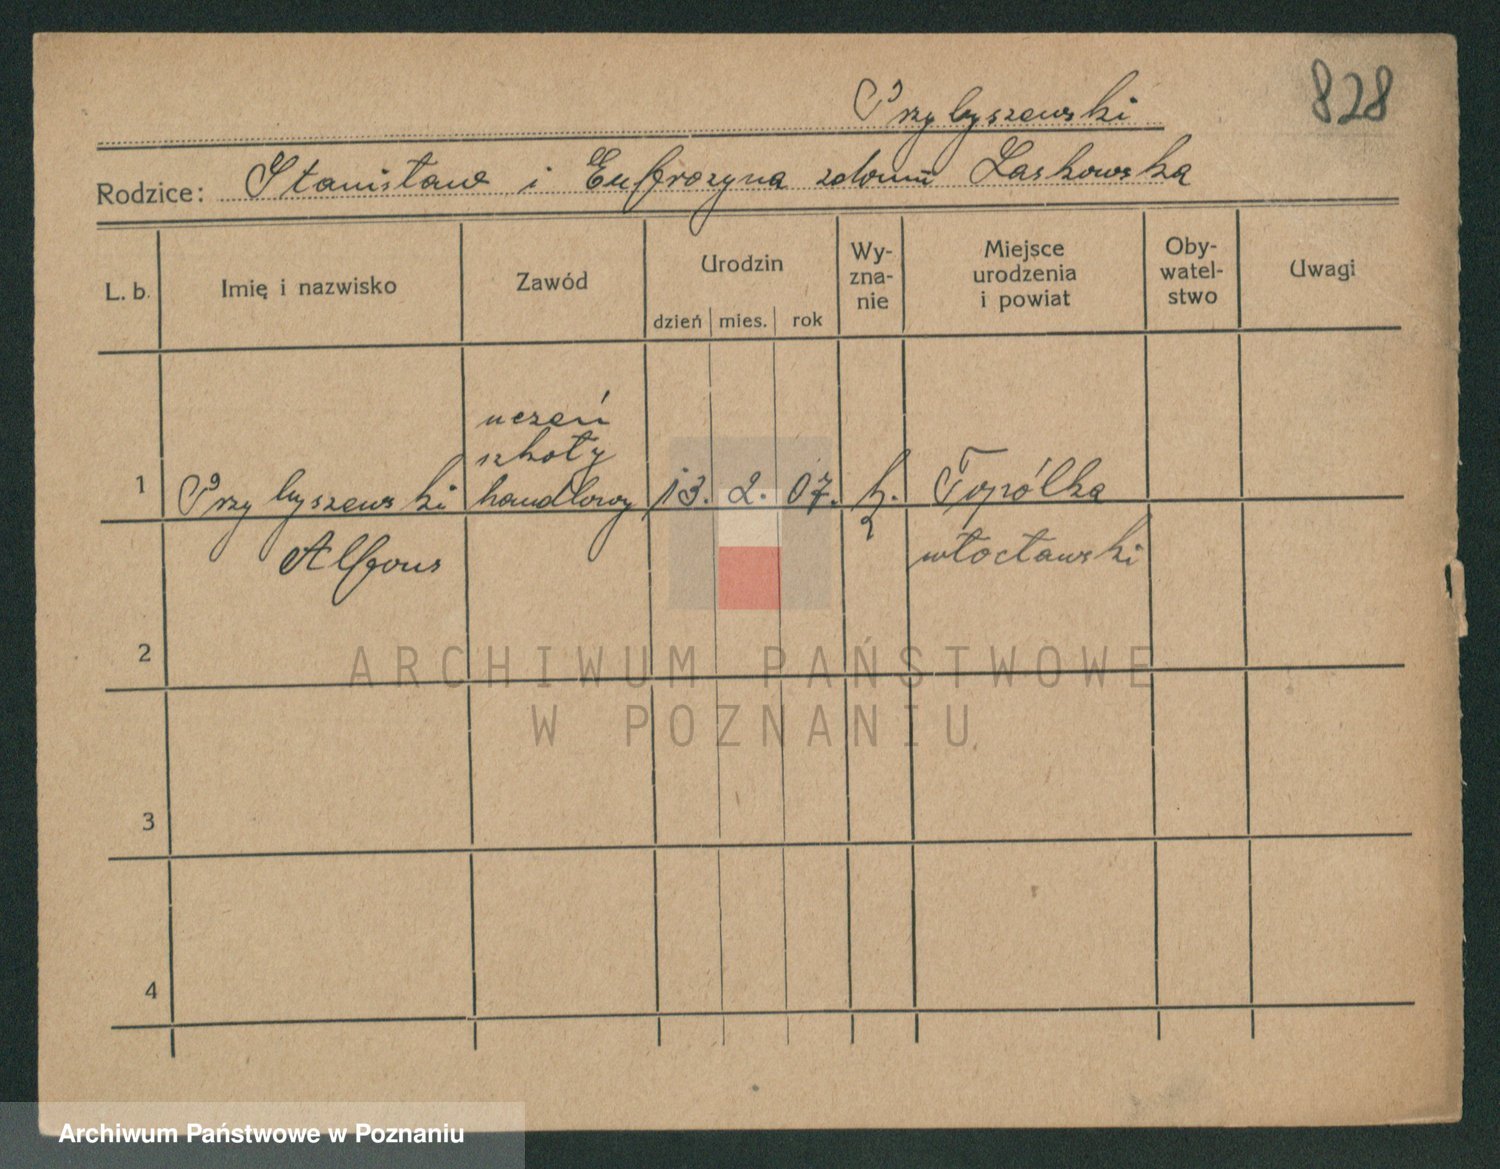 828
Przybyszewski
Rodzice: Stanisław i Eufrozyna zdomu Laskowska
L. b. Imię i nazwisko Zawód Urodzin Wy-zna-nie Miejsce urodzenia i powiat Oby-watel-stwo Uwagi
dzień mies. rok
1 Przybyszewski uczeń szkoły handlowy 13. 2. 07. k. Topólka
Alfons włocławski
2
ARCHIWUM PAŃSTWOWE
W POZNANIU
3
4
Archiwum Państwowe w Poznaniu